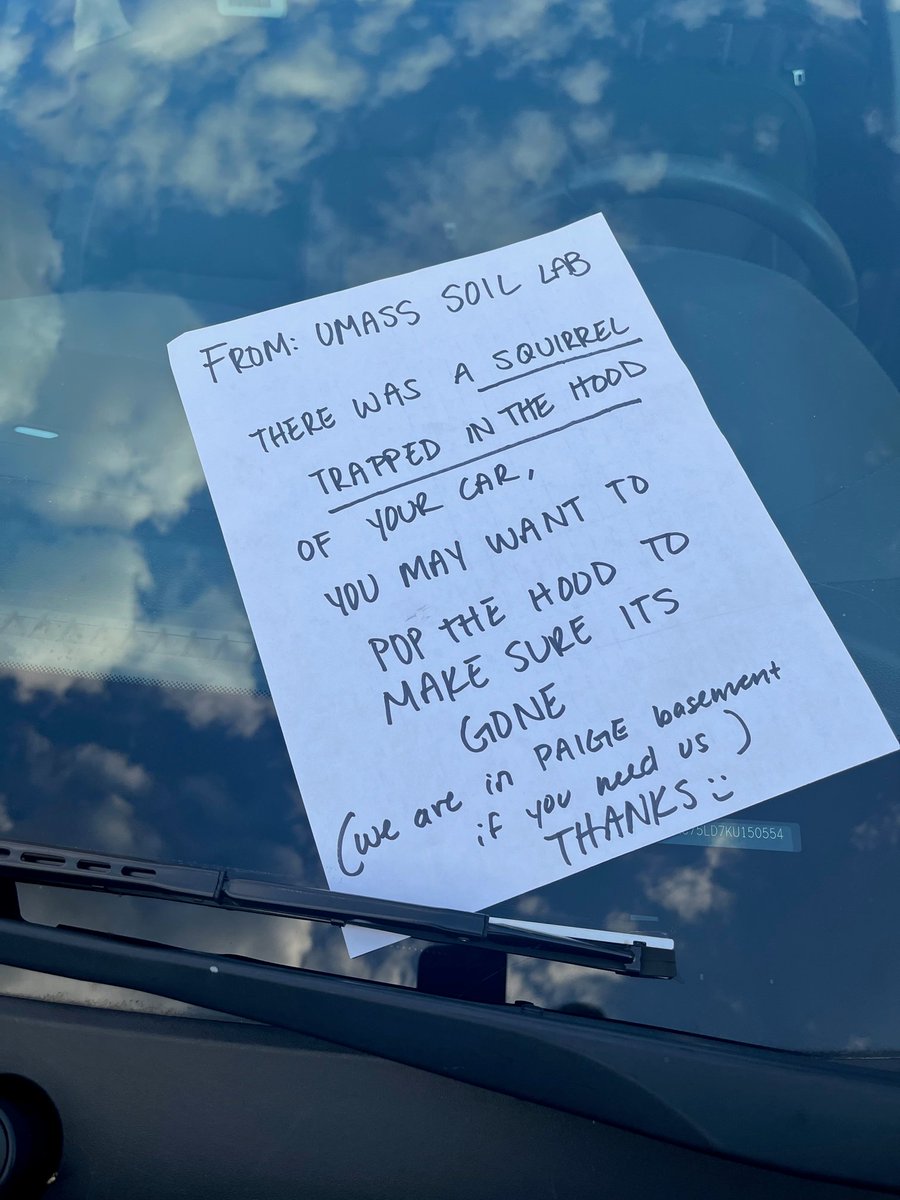 FROM: UMASS SOIL LAB
THERE WAS A SQUIRREL
TRAPPED IN THE HOOD
OF YOUR CAR,
YOU MAY WANT TO
POP THE HOOD TO
MAKE SURE ITS
GONE
(we are in PAIGE basement
if you need us)
THANKS :)
75LD7KU150554